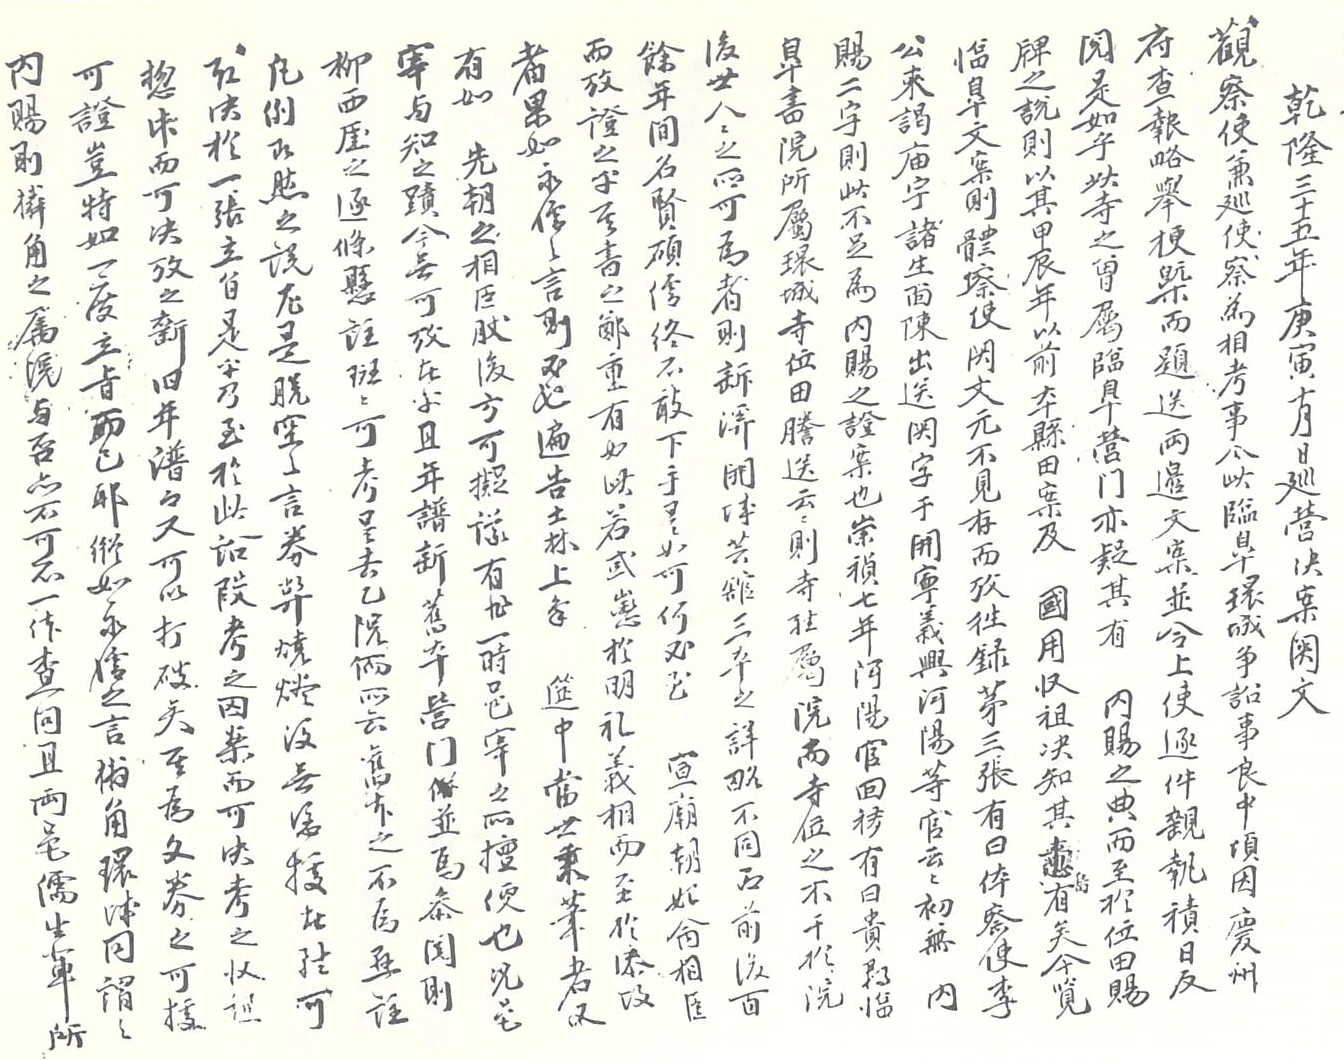 乾隆三十五年庚寅十月日巡營決案関文
觀察使兼巡使察為相考事今此臨皐環城爭訟事良中頃因慶州
府查報略舉梗槩而題送兩邊文案並令上使逐件觀執積日反
閱是如乎此寺之曾屬臨皐營门亦疑其有 內賜之典而至於位田賜
牌之說則以其甲辰年以前本縣田案及 國用収租决知其 有矣今覽
臨皐文案則體察使関文元不見存而攷徃録苐三張有曰体察使李
公来謁庙宇諸生面陳出送関字于開寧義興河陽等官云〻初無 內
賜二字則此不足為 內賜之證案也崇禎七年河陽官回移有曰貴縣臨
皐書院所屬環城寺位田謄送云〻則寺雖屬院而寺位之不干於院
後世人〻之所可為者則新溪開城芸舘三本之詳略不同而前後百
餘年间名賢碩儒終不敢下手是如可何必至 宣廟朝如命相臣
而攷證之乎其書之鄭重有如此若或 於明礼義相而至於添改
者果如永儒之言則必也遍告士林上 筵中當世秉筆者又
有如 先朝之相臣 後方可擬議有非一時邑宰之所擅便也况邑
宰与知之蹟今無可攷在乎且年譜新舊本營门 並爲叅閱則
柳西厓之逐條懸註斑〻可考是去乙院儒所云舊本之不爲懸註
凡例 然之說尤是脫空之言券契燒燼沒無憑據在 可
取决於一張立旨是乎乃至於此訟段考之田案而可决考之収租
惣 而可决攷之新旧年譜而又可以打破矣至爲文券之可據
可證豈特如一度立旨而已耶縱如永儒之言獨角環城同謂之
內賜則獨角之属院与否亦不可不一体查问且兩邑儒生輩所